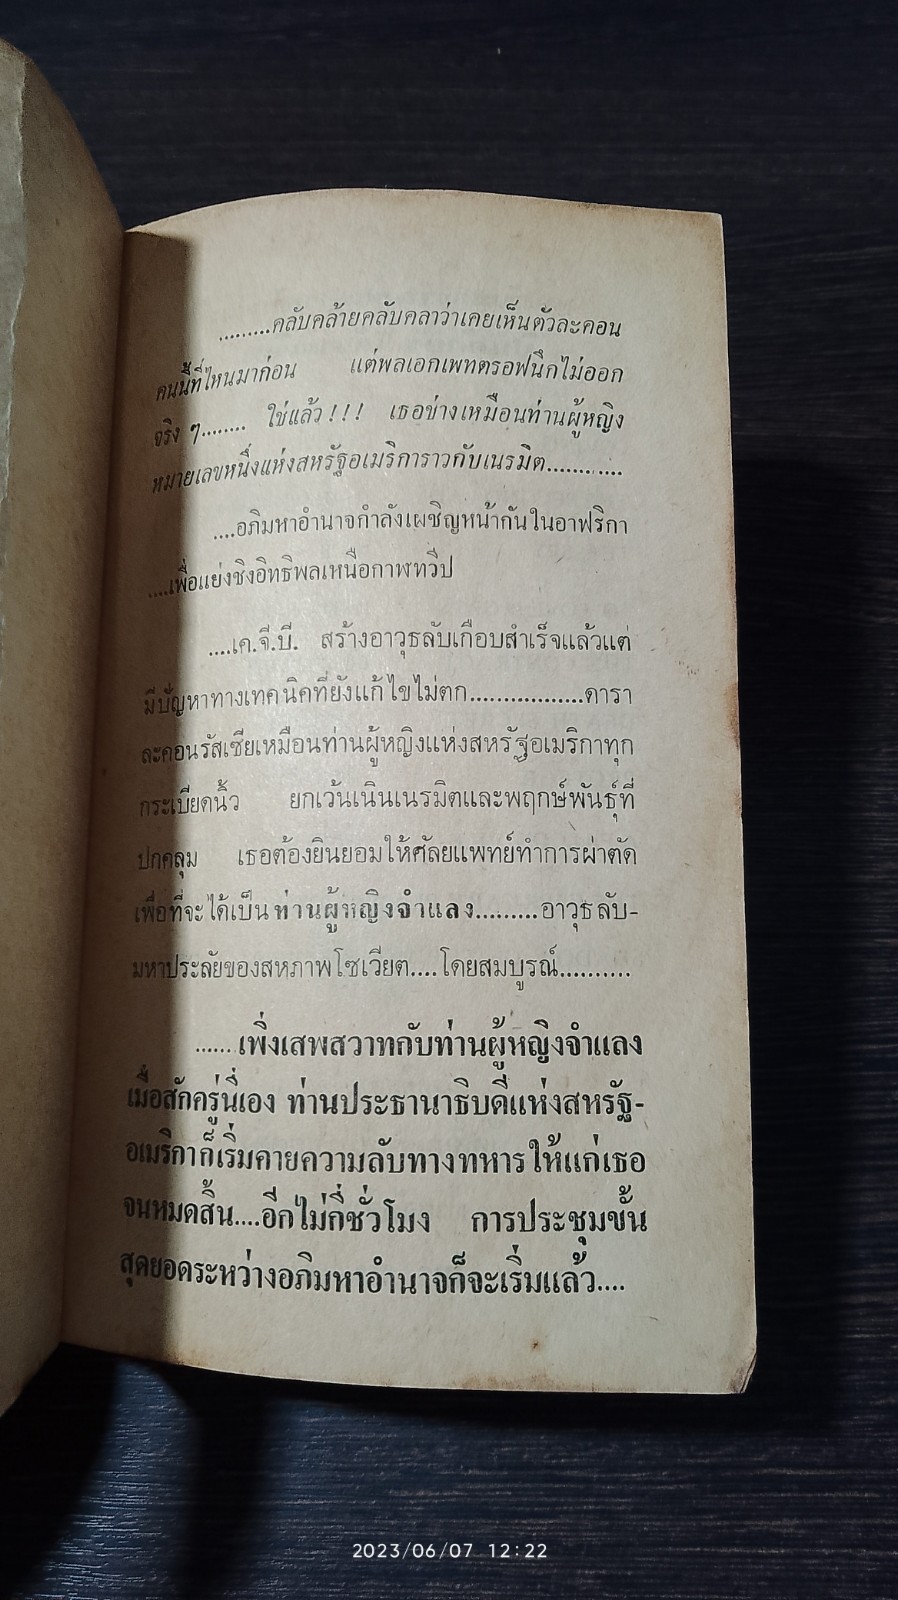 .........คลับคล้ายคลับคลาว่าเคยเห็นตัวละคอน
คนนี้ที่ไหนมาก่อน แต่พลเอกเพทตรอฟนึกไม่ออก
จริง ๆ........ ใช่แล้ว!!! เธอช่างเหมือนท่านผู้หญิง
หมายเลขหนึ่งแห่งสหรัฐอเมริการาวกับเนรมิต............
....อภิมหาอำนาจกำลังเผชิญหน้ากันในอาฟริกา
....เพื่อแย่งชิงอิทธิพลเหนือกาฬทวีป
....เค.จี.บี. สร้างอาวุธลับเกือบสำเร็จแล้วแต่
มีปัญหาทางเทคนิคที่ยังแก้ไขไม่ตก.................ดารา
ละคอนรัสเซียเหมือนท่านผู้หญิงแห่งสหรัฐอเมริกาทุก
กระเบียดนิ้ว ยกเว้นเนินเนรมิตและพฤกษ์พันธุ์ที่
ปกคลุม เธอต้องยินยอมให้ศัลยแพทย์ทำการผ่าตัด
เพื่อที่จะได้เป็นท่านผู้หญิงจำแลง.........อาวุธลับ-
มหาประลัยของสหภาพโซเวียต....โดยสมบูรณ์..........
......เพิ่งเสพสวาทกับท่านผู้หญิงจำแลง
เมื่อสักครู่นี่เอง ท่านประธานาธิบดีแห่งสหรัฐ-
อเมริกาก็เริ่มคายความลับทางทหารให้แก่เธอ
จนหมดสิ้น....อีกไม่กี่ชั่วโมง การประชุมขั้น
สุดยอดระหว่างอภิมหาอำนาจก็จะเริ่มแล้ว....
2023/06/07 12:22